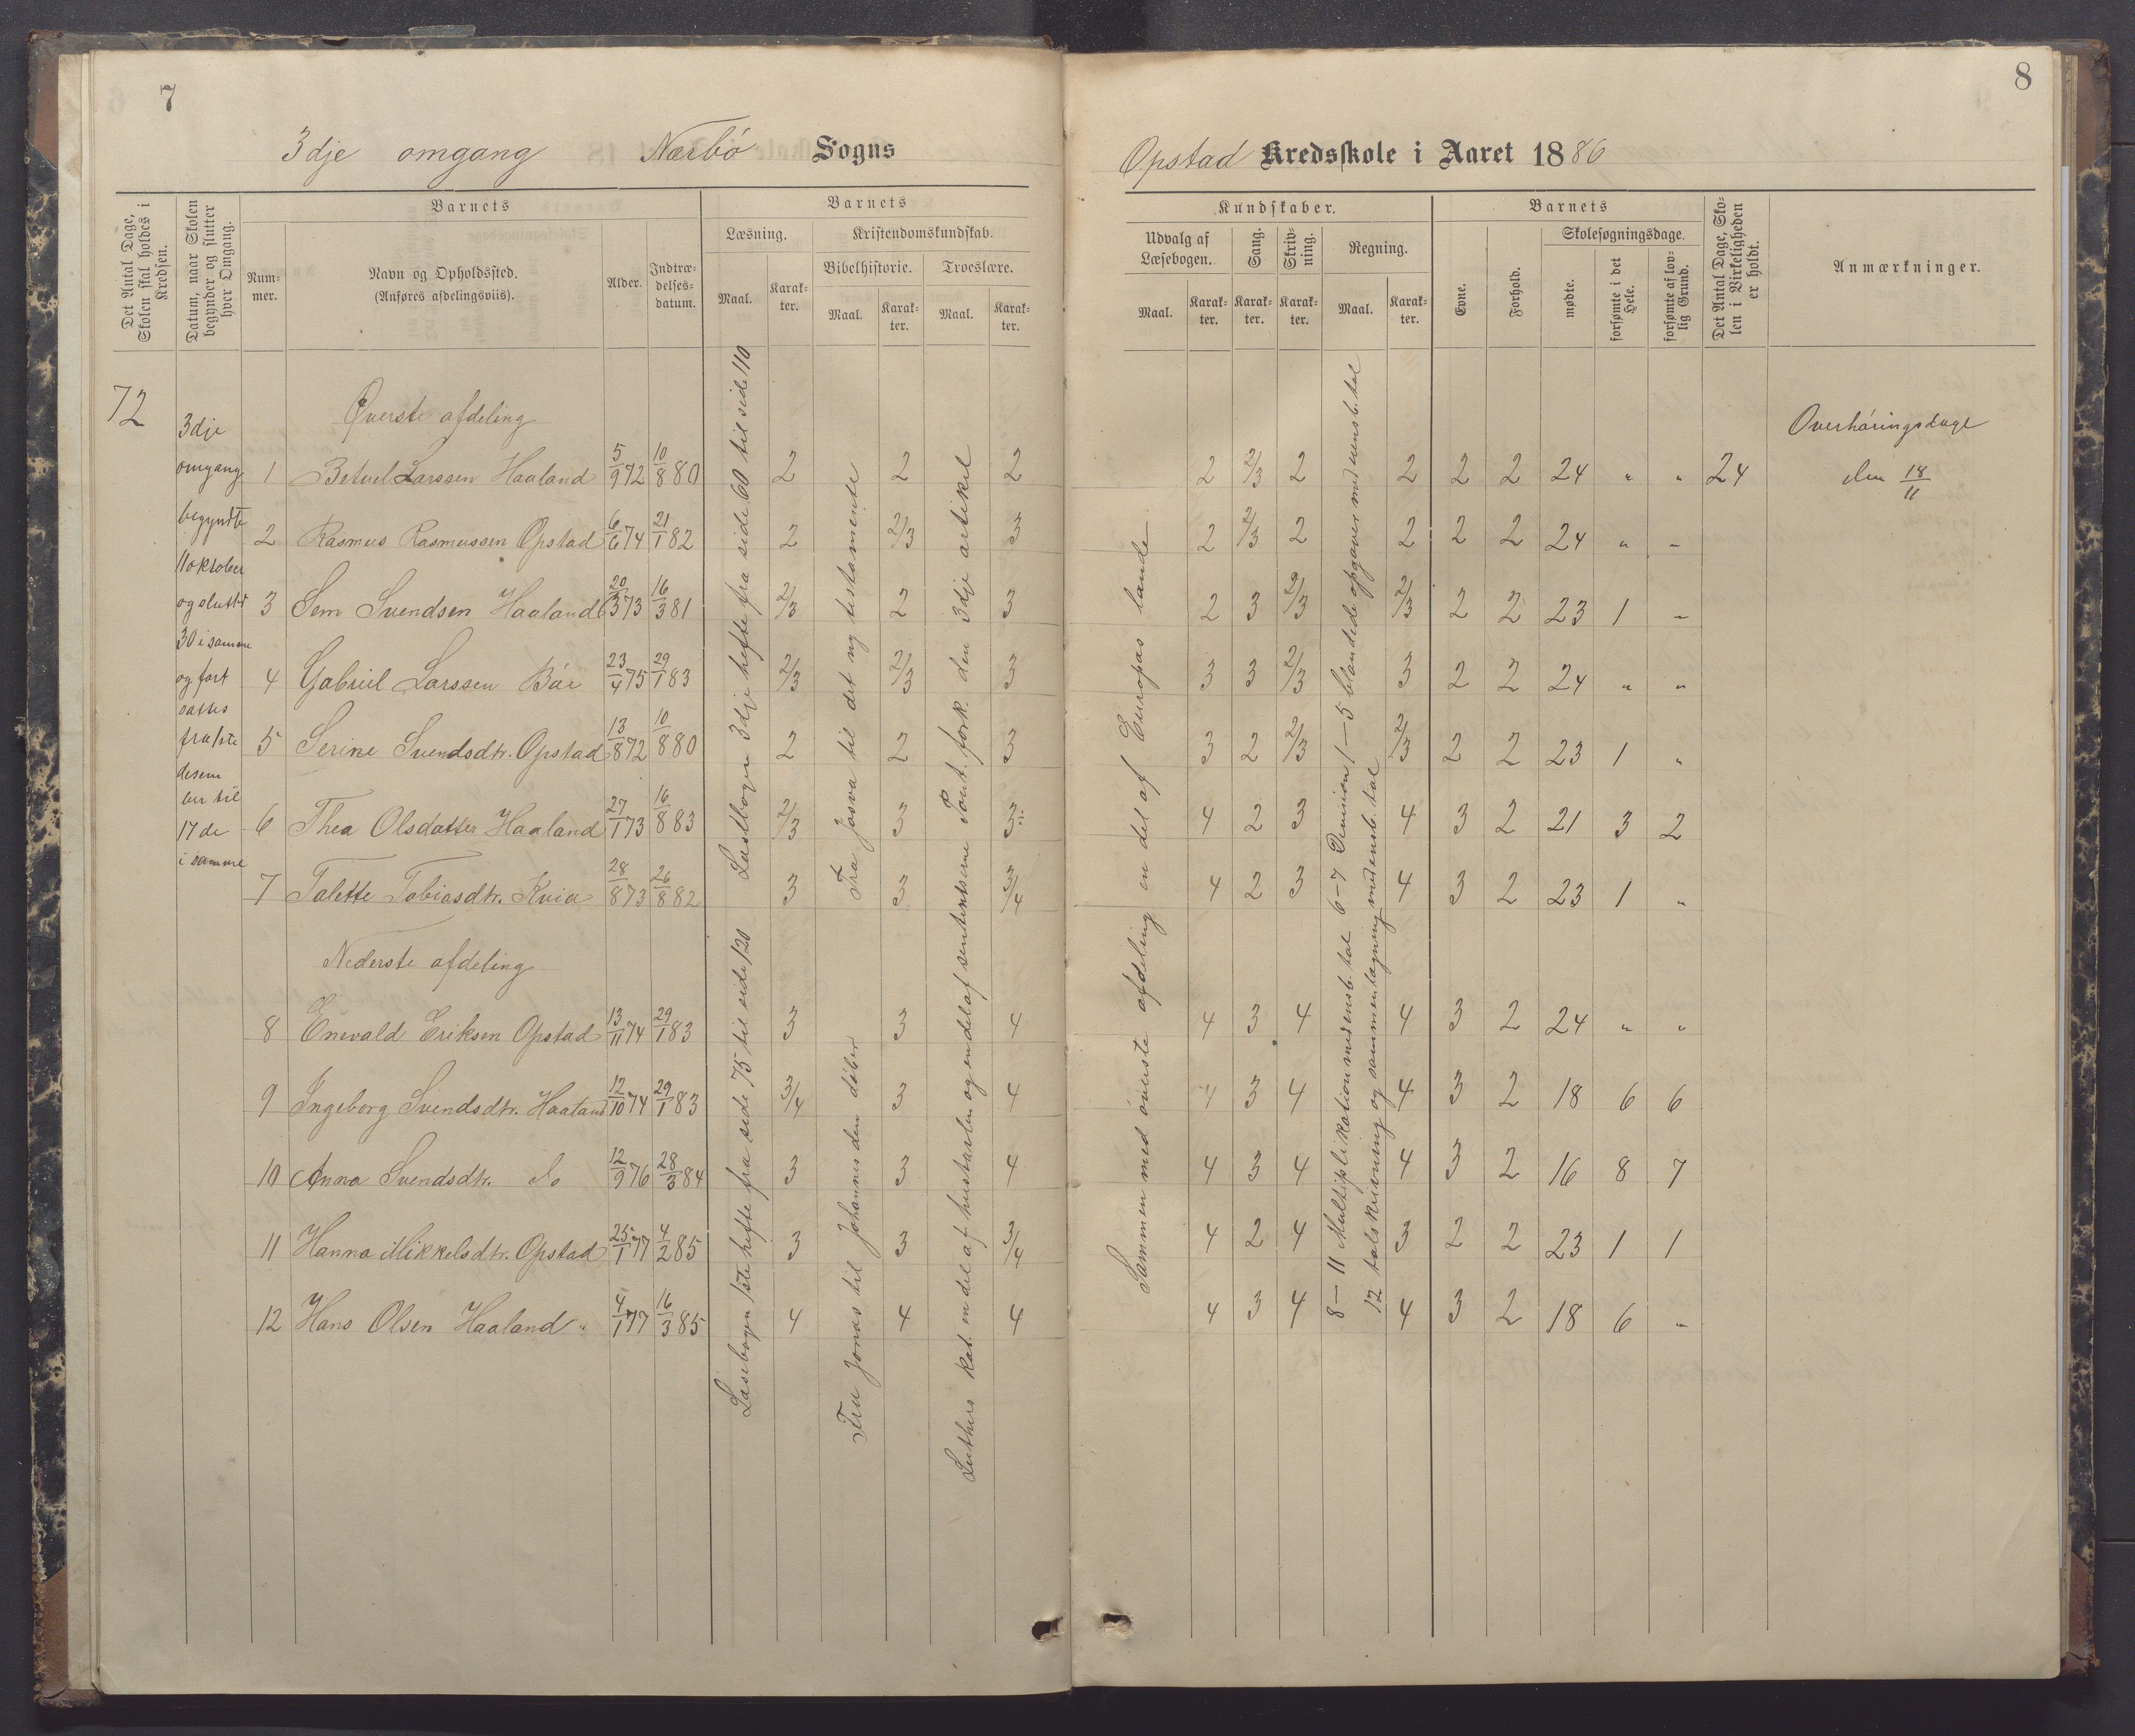 7
3dje omgang Nærbö Sogns
Det Antal Dage, Skolen skal holdes i Kredsen.
Datum, naar Skolen begynder og slutter hver Omgang.
Barnets
Nummer.
Navn og Opholdssted.
(Anføres afdelingsviis).
Alder.
Indtrædelsesdatum.
Barnets
Læsning.
Maal.
Karakter.
Kristendomskundskab.
Bibelhistorie.
Maal.
Karakter.
Troeslære.
Maal.
Karakter.
72
3dje
omgang
begyndte
11 oktober
og sluttet
30 i samme
og fort
sattes
fra 1ste
desem
ber til
17 de
i samme
Øverste afdeling
1 Betuel Larssen Haaland 5/9 72 10/8 80 2 2 2
2 Rasmus Rasmussen Opstad 6/6 74 21/1 82 2 2/3 3
3 Sem Svendsen Haaland 20/3 73 16/3 81 2/3 2 3
4 Gabriel Larssen Bár 23/4 75 29/1 83 2/3 2/3 3
5 Serine Svendsdtr. Opstad 13/8 72 10/8 80 2 2 3
6 Thea Olsdatter Haaland 27/1 73 16/8 83 2/3 3 3
7 Talette Tobiasdtr. Kvia 28/8 73 26/8 82 3 3 3/4
Nederste afdeling
8 Enevald Eriksen Opstad 13/11 74 29/1 83 3 3 4
9 Ingeborg Svendsdtr. Haaland 12/10 74 29/1 83 3/4 3 4
10 Anna Svendsdtr. do 12/9 76 28/3 84 3 3 4
11 Hanna Mikkelsdtr. Opstad 25/1 77 4/2 85 3 3 3/4
12 Hans Olsen Haaland 4/1 77 16/3 85 4 4 4
Læsebogen 3dje hefte fra side 60 til side 110
Læsebogen 1ste hefte fra side 75 til side 120
Fra Josva til det ny testamente
Fra Jonas til Johannes den döber
Pont. fork. den 3dje artikel
Luthers kat. en del af hustavlen og en del af sententserne
8
Opstad Kredsskole i Aaret 1886
Kundskaber.
Udvalg af Læsebogen.
Maal.
Karakter.
Sang.
Karakter.
Skrivning.
Karakter.
Regning.
Maal.
Karakter.
Barnets
Evne.
Forhold.
Skolesøgningsdage.
mødte.
forsømte i det Hele.
forsømte af lovlig Grund.
Det Antal Dage, Skolen i Virkeligheden er holdt.
Anmærkninger.
Overhøringsdage
den 18/11
2 2/3 2 2 2 2 24 " " 24
2 2/3 2 2 2 2 24 " "
2 3 2/3 2/3 2 2 23 1 "
3 3 2/3 3 2 2 24 " "
3 2 2/3 2/3 2 2 23 1 "
4 2 3 4 3 2 21 3 2
4 2 3 4 3 2 23 1 "
4 3 4 4 3 2 24 " "
4 3 4 4 3 2 18 6 6
4 3 4 4 3 2 16 8 7
4 2 4 3 2 2 23 1 1
4 3 4 4 3 2 18 6 "
en del af Europas lande
Sammen med överste afdeling
1–5 blandede opgaver med uensb. tal
6–7 Division med ensb. tal
8–11 Multiplikation med ensb. tal
12 talskrivning og sammenlægning